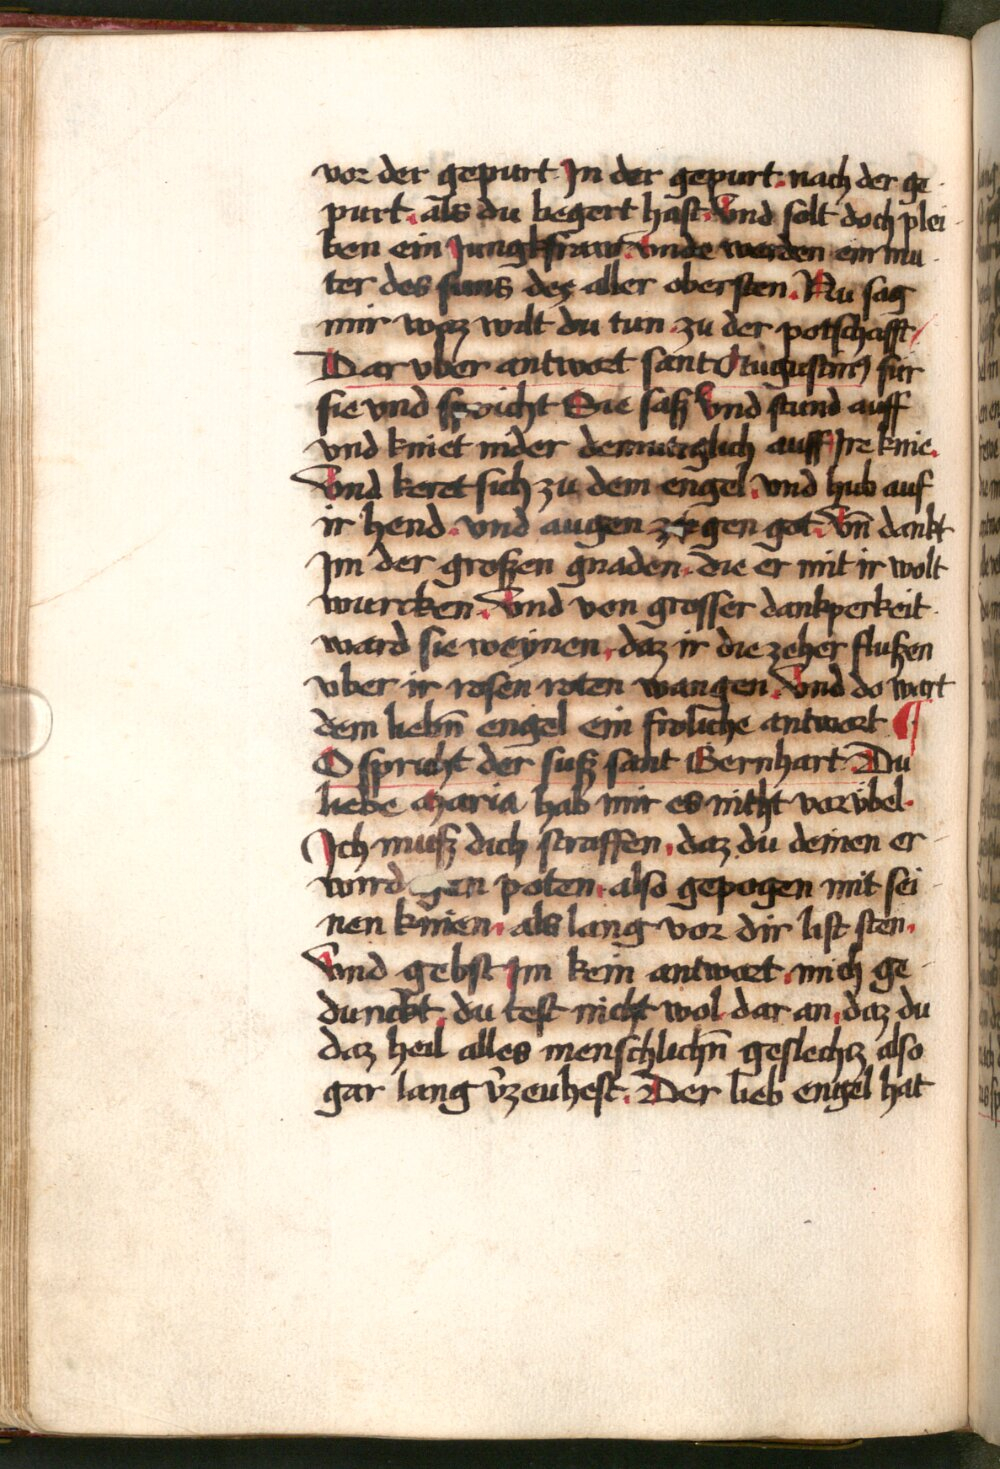 vor der gepurt Jn der gepurt. nach der ge
purt. als du begert hast. Vnd solt doch plei
ben ein Jungkfraw. vnde werden ein mu
ter des suns dez aller obersten. Nu sag
mir waz wilt du tun zu der potschafft
Dar vber antwort sant Augustinus fur
sie vnd spricht Sie saß Vnd stund auff
vnd kniet nider demutiglich auff Jre knie.
Vnd keret sich zu dem engel. vnd hub auf
ir hend. vnd augen gen got. Vn̄ dankt
Jm der großen gnaden. die er mit ir wolt
wurcken. Vnd von grosser dankperkeit
ward sie weynen. daz ir die zeher flußen
vber ir rosen roten wangen. Vnd do wart
dem liebn̄ engel ein froliche antwort
O spricht der suß sant Bernhart Du
liebe maria hab mir es nicht vor vbel.
Jch muß dich straffen, daz du deinen er
wird gen poten. also gepogen mit sei
nen knien. als lang vor dir list sten.
Vnd gebst Jm kein antwort. mich ge
dunckt. du test nicht wol dar an, daz du
daz heil alles menschlichn̄ geslechz also
gar lang v̄zeuhest. Der lieb engel hat